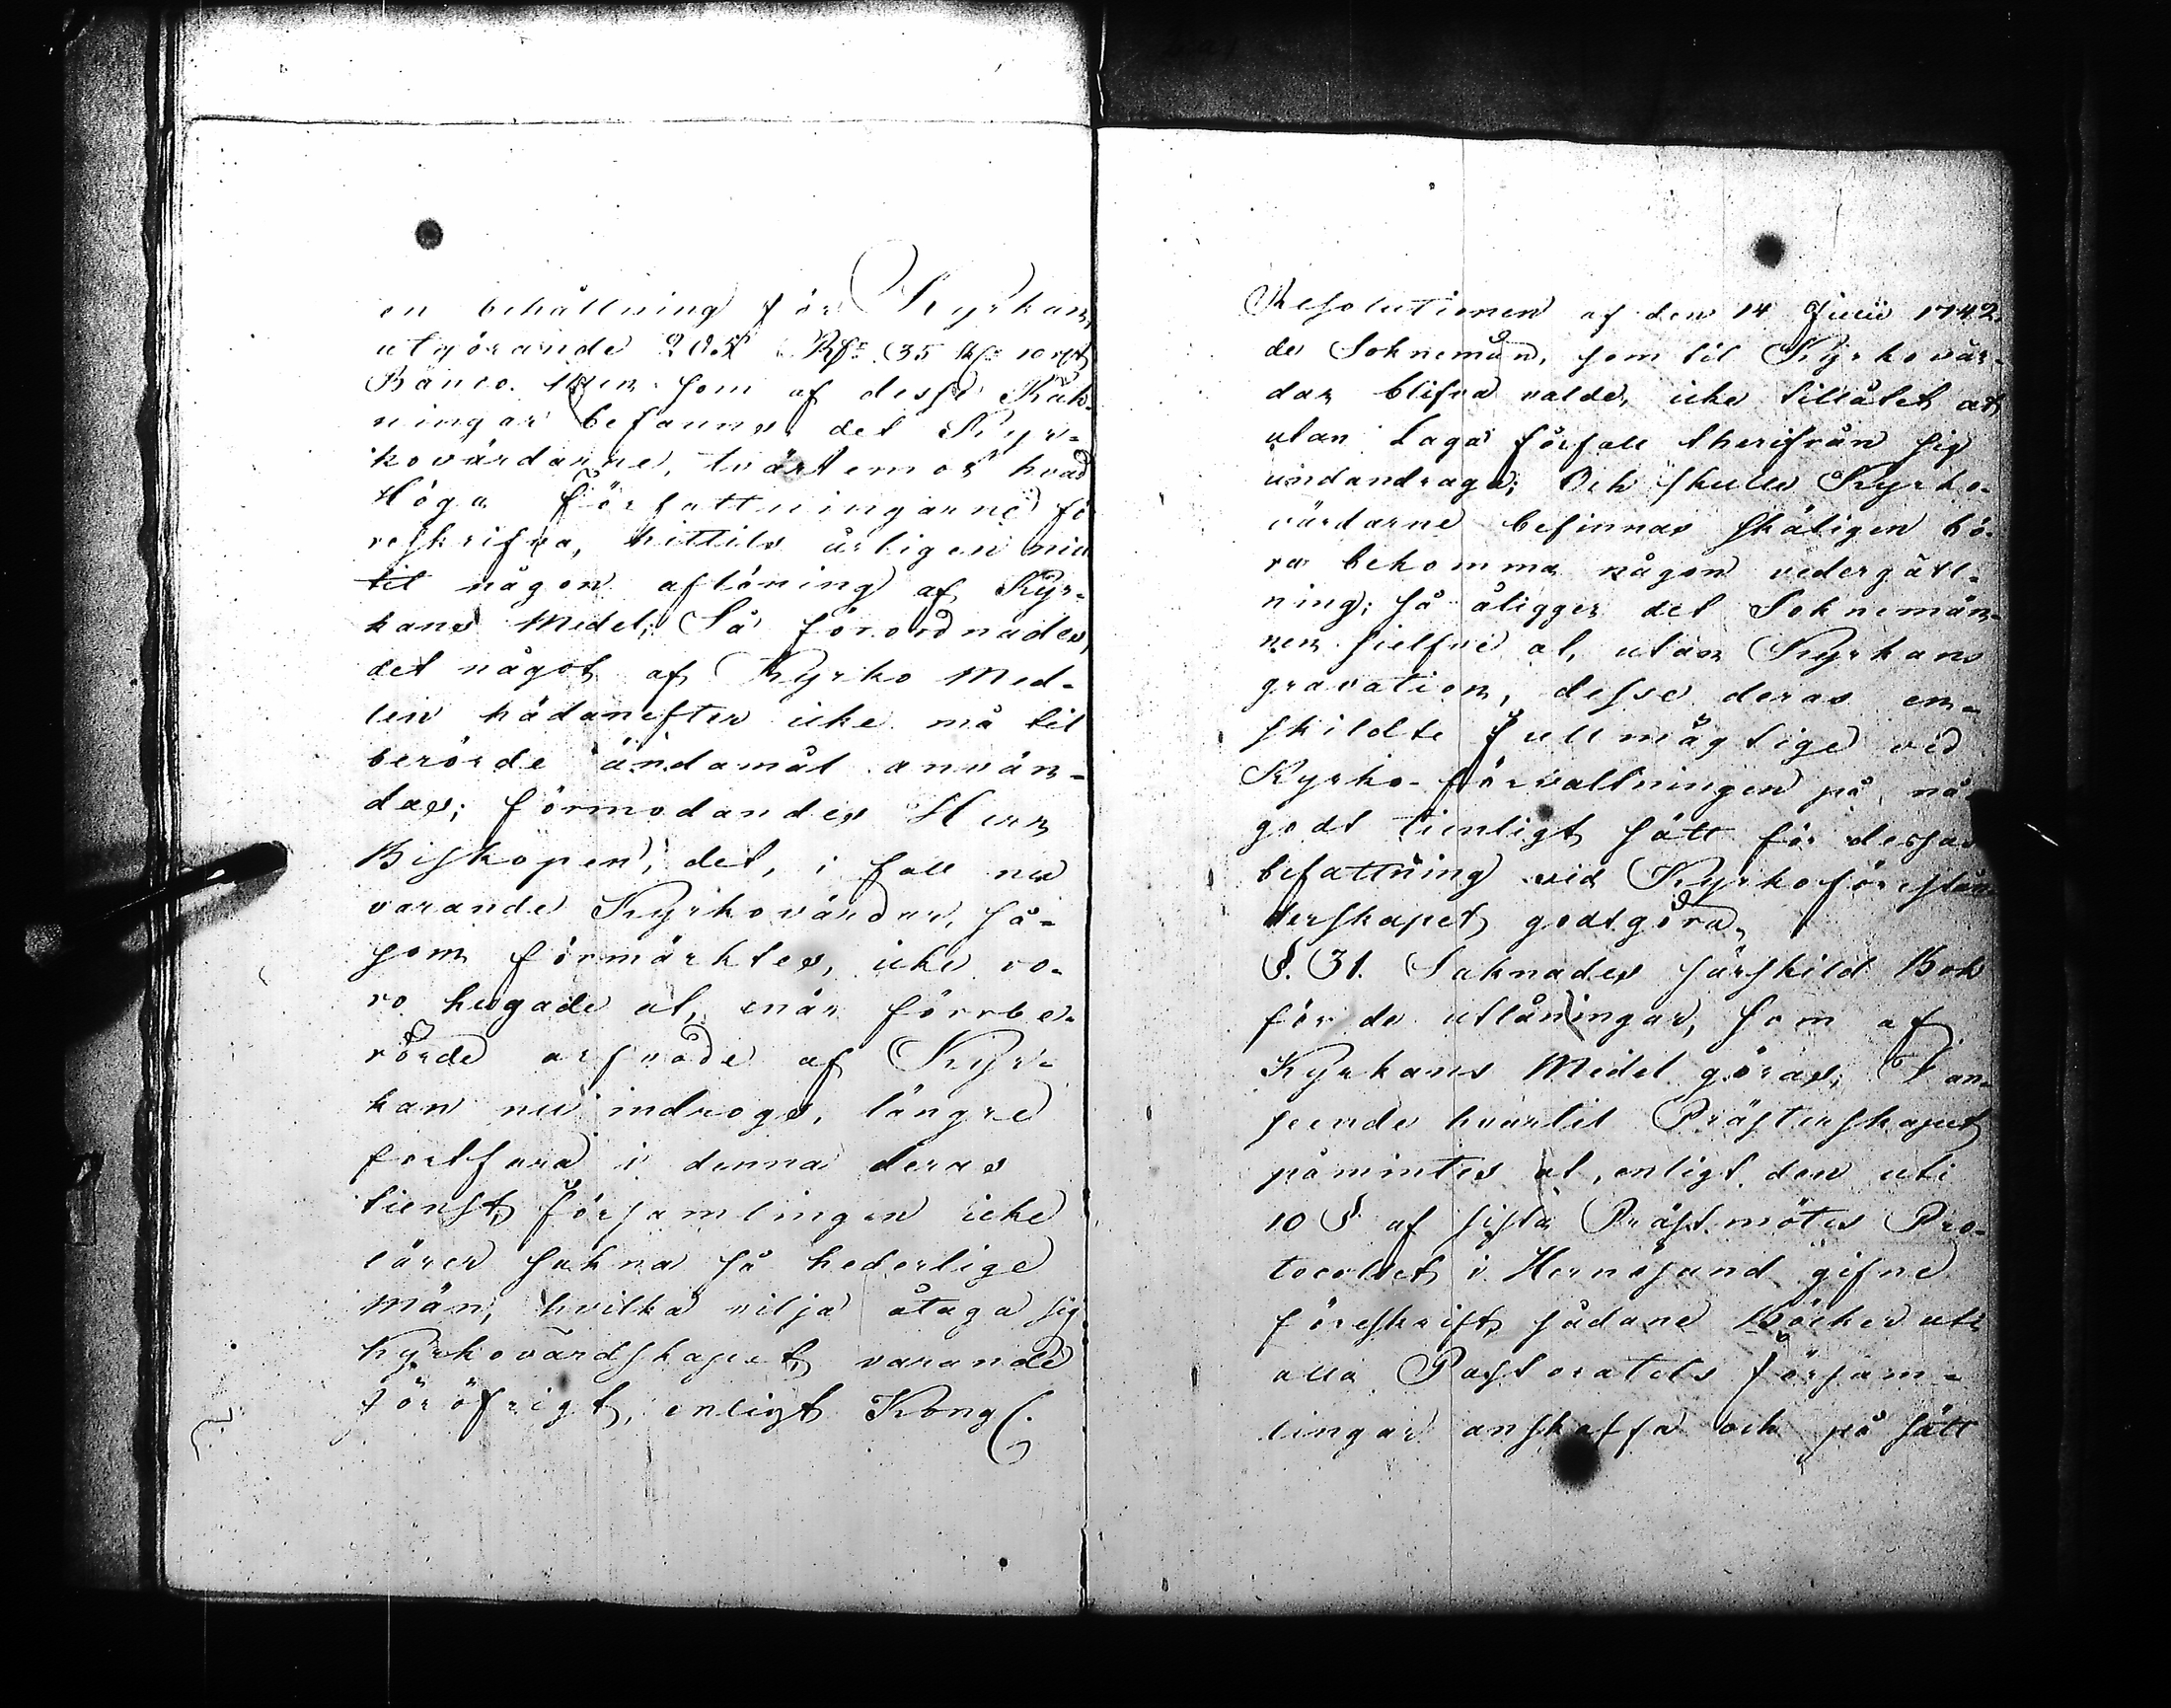 en behållning för Kyrkan,
utgörande Rds 35 sk 10 rst
Banco. Men som af desse Räk-
ningar befanns, det Kyr-
kovärdarne, tvärtemot hvad
Höga Författningarne fö
reskrifva, hittils årligen niu
tit någon aflöning af Kyr-
kans Medel; Så förordnades,
det något af Kyrko Med-
len hädanefter icke må til
berörde ändamål använ-
das; förmodandes Herr
Biskopen, det, i fall nu
varande Kyrkovärdar, så-
som förmärktes, icke vo-
ro hugade at, enär förrbe-
rörde arfvode af Kyr-
kan nu indrogs, längre
fortfara i denna deras
tienst, Församlingen icke
lärer sakna så hederlige
Män, hvilka vilja åtaga sig
Kyrkovärdskapet, varande
föröfrigt, enligt Kongl.
Resolutionen af den 14 Junii 1742.
de Soknemän, som til Kyrkovär-
dar blifva valde, icke tillåtet at
utan Laga förfall therifrån sig
undandraga; Och skulle Kyrko-
värdarne befinnas skäligen bö-
ra bekomma någon vedergäll-
ning; så åligger det Soknemän-
nen sielfve at, utan Kyrkans
gravation, desse deras en-
skildte Fullmägtige vid
Kyrko-förvaltningen på nå-
godt tienligt sätt för dessas
befattning vid Kyrkoförestån
derskapet godtgöra.
§. 31. Saknades särskild Bok
för de utlåningar, som af
Kyrkans Medel göras; I an-
seende hvartil Prästerskapet
påmintes at, enligt den uti
10 § af sista Prästmötes Pro-
tocollet i Hernösand gifne
föreskrift, sådane Böcker uti
alla Pastoratets Försam-
lingar anskaffa och på sätt